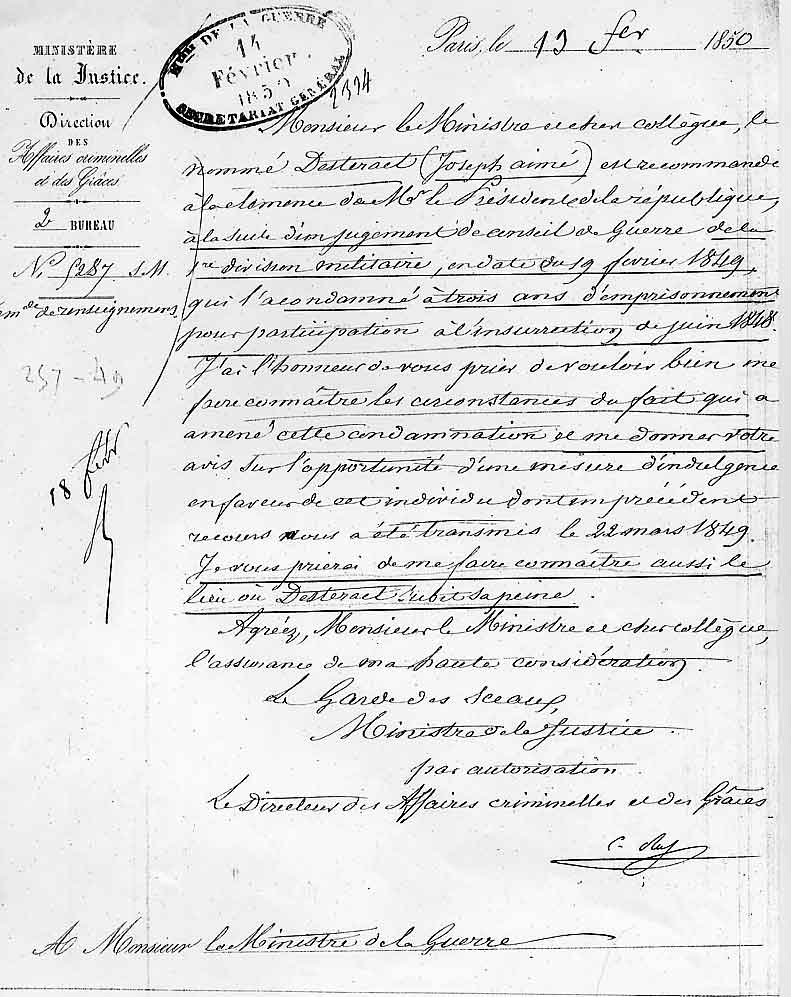 MINISTÈRE
de la Justice.
Direction
DES
Affaires criminelles
et des Grâces
2 BUREAU
N° 5287 S.M.
mde de renseignemens
257-49
18 febr
Mtère DE LA GUERRE
14
Février
1850
SECRETARIAT GENERAL
2394
Paris, le 13 fer 1850
Monsieur le Ministre et cher collègue, le
nommé Desteract (Joseph aimé) est recommandé
à la clemence de Mr le Président de la république,
à la suite d'un jugement de conseil de Guerre de la
1re division militaire, en date du 19 fevrier 1849,
qui l'a condamné à trois ans d'emprisonnement
pour participation à l'insurrection de juin 1848.
J'ai l'honneur de vous prier de vouloir bien me
faire connaître les circonstances du fait qui a
amené cette condamnation et me donner votre
avis sur l'opportunité d'une mesure d'indulgence
en faveur de cet individu dont un précédent
recours vous a été transmis le 22 mars 1849.
Je vous prierai de me faire connaître aussi le
lieu où Desteract subit sa peine.
Agréez, Monsieur le Ministre et cher collègue,
l'assurance de ma haute considération.
Le Garde des Sceaux,
Ministre de la Justice.
par autorisation.
Le Directeur des Affaires criminelles et des Grâces
A Monsieur le Ministre de la Guerre